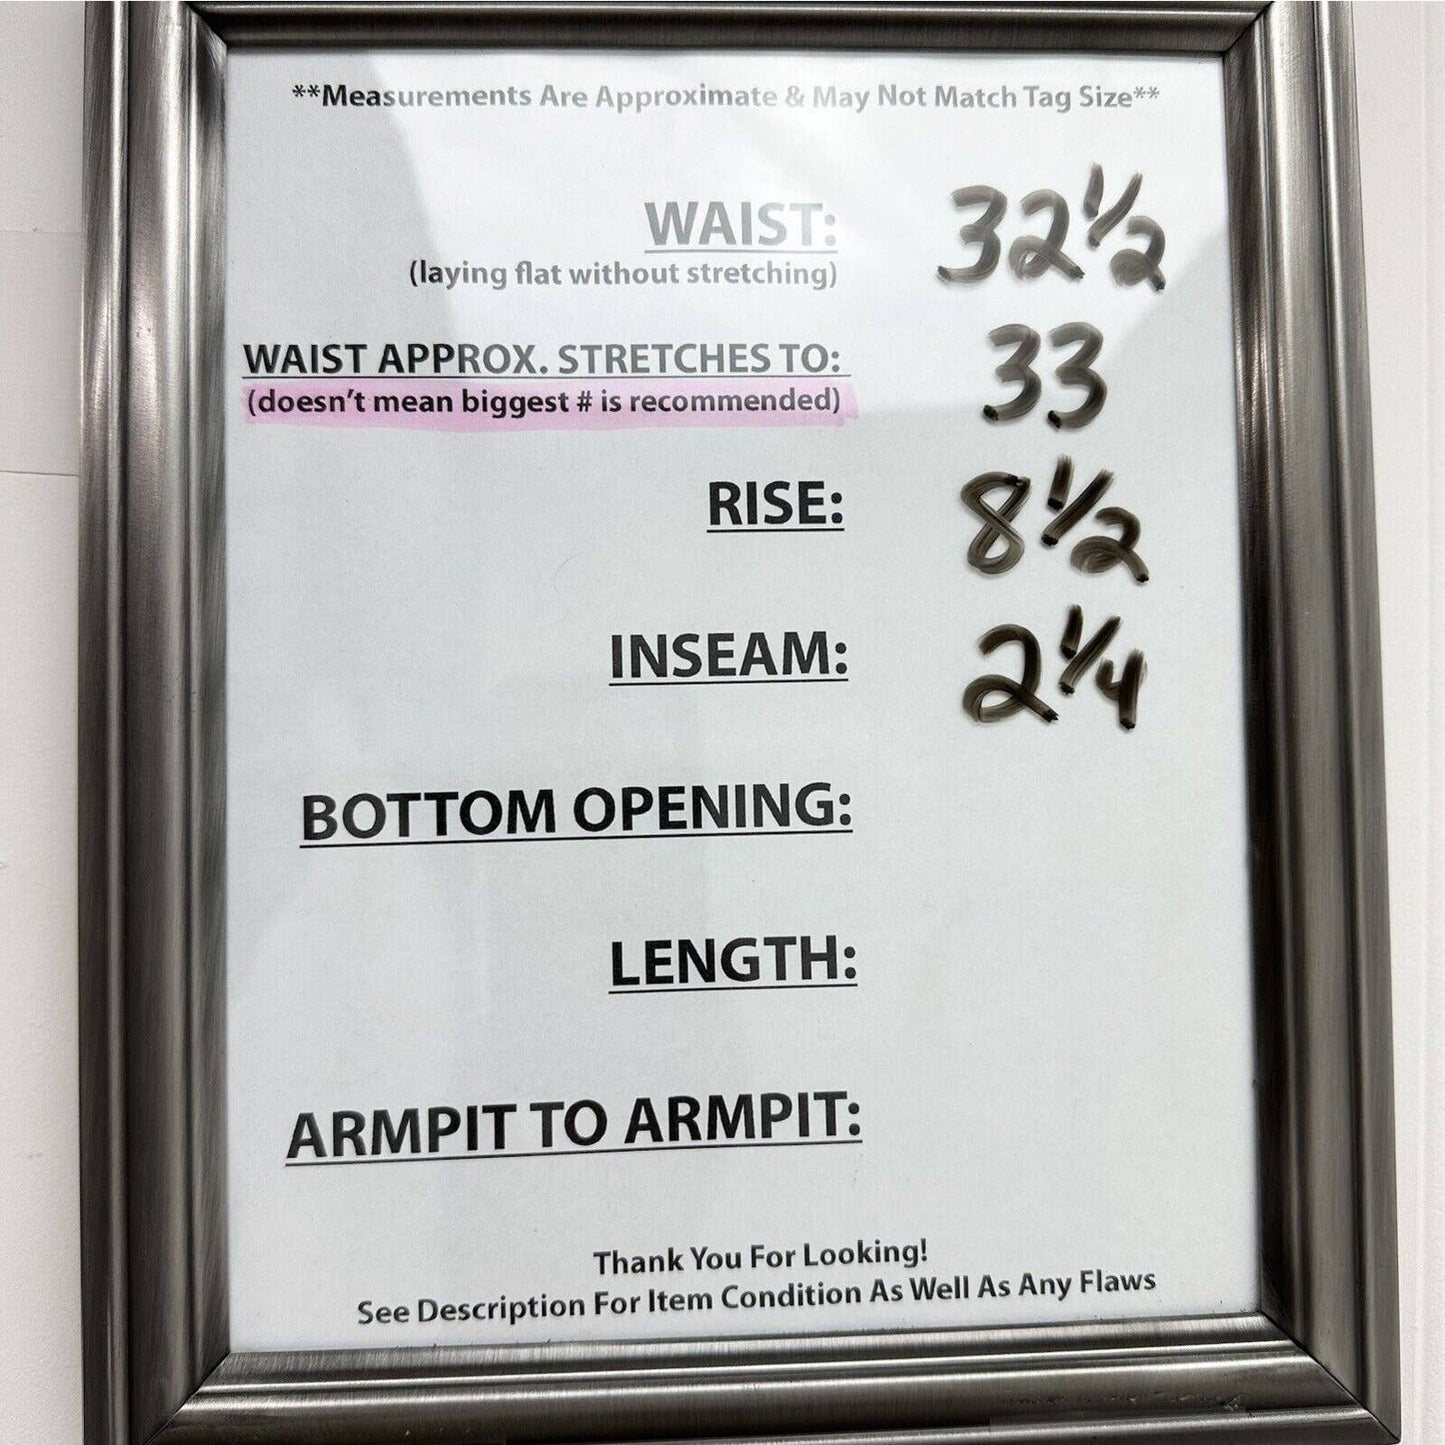 **Measurements Are Approximate & May Not Match Tag Size**
WAIST: 32 1/2
(laying flat without stretching)
WAIST APPROX. STRETCHES TO: 33
(doesn't mean biggest # is recommended)
RISE: 8 1/2
INSEAM: 2 1/4
BOTTOM OPENING:
LENGTH:
ARMPIT TO ARMPIT:
Thank You For Looking!
See Description For Item Condition As Well As Any Flaws